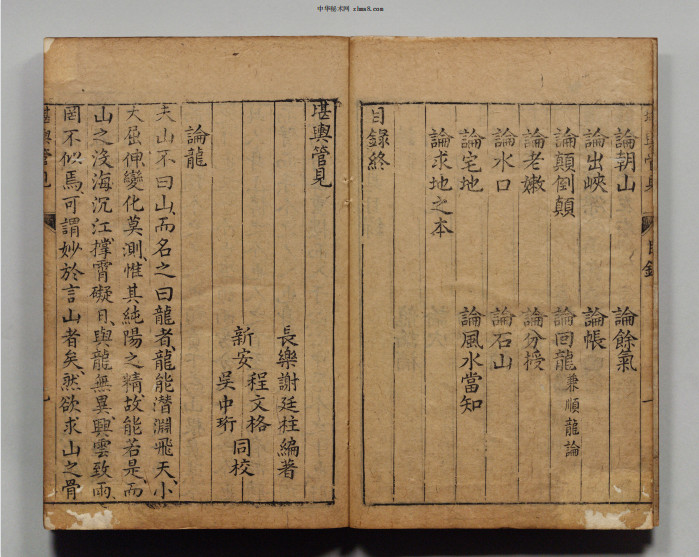 中华秘术网 zhms8.com
論朝山 論餘氣
論出峽 論帳
論顛倒顛 論回龍兼順龍論
論老嫩 論分授
論水口 論石山
論宅地 論風水當知
論求地之本
目錄終
目錄
堪輿管見
長樂謝廷柱編著
新安程文格
吳中珩同校
論龍
夫山不曰山而名之曰龍者龍能潛淵飛天小
大屈伸變化莫測惟其純陽之精故能若是而
山之没海沉江撑霄礙日與龍無異興雲致雨
罔不似焉可謂妙於言山者矣然欲求山之骨
堪輿管見